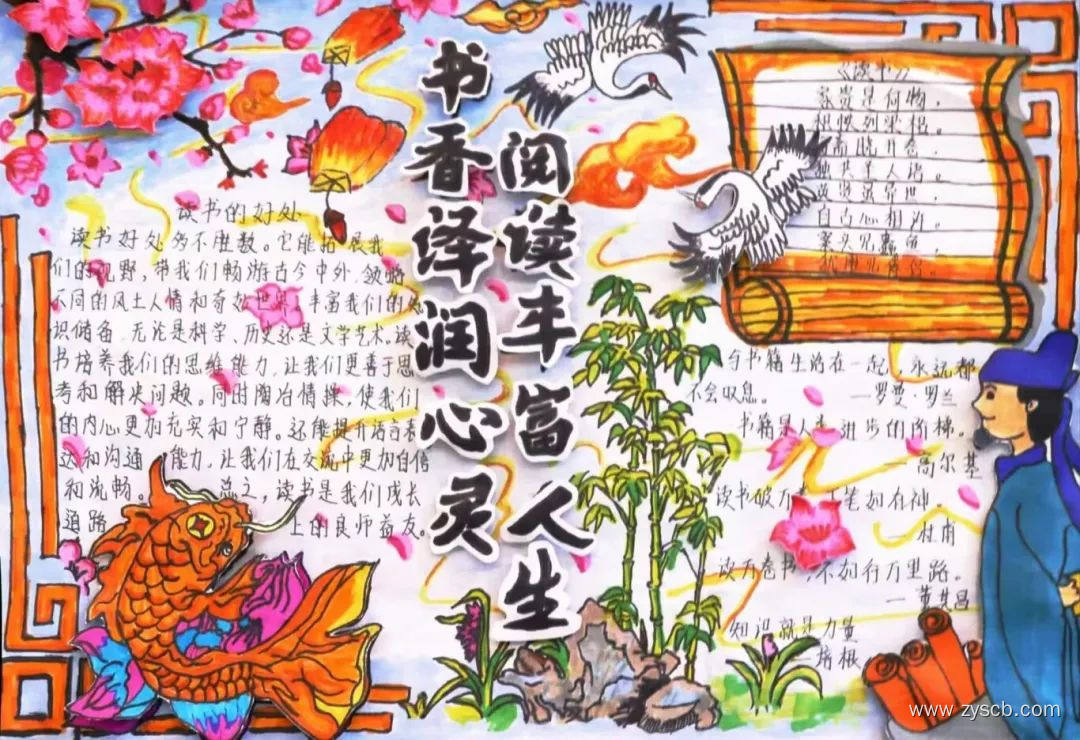 书香泽润心灵
阅读丰富人生
读书的好处
读书好处多不胜数。它能拓展我
们的视野,带我们畅游古今中外,领略
不同的风土人情和奇妙世界,丰富我们的知
识储备,无论是科学、历史还是文学艺术。读
书培养我们的思维能力,让我们更善于思
考和解决问题。同时陶冶情操,使我们
的内心更加充实和宁静。还能提升语言表
达和沟通能力,让我们在交流中更加自信
和流畅。总之,读书是我们成长
道路上的良师益友。
《读书》
家贫是何物,
积帙列梁梠。
高晓开卷,
独共圣人语。
英贤虽异世,
自古心相许。
案头见蠹鱼,
与书籍生活在一起,永远都
不会叹息。
—罗曼·罗兰
书籍是人类进步的阶梯。
—高尔基
读书破万 下笔如有神。
—杜甫
读万卷书,不如行万里路。
—董其昌
知识就是力量
—培根
www.zyscb.com